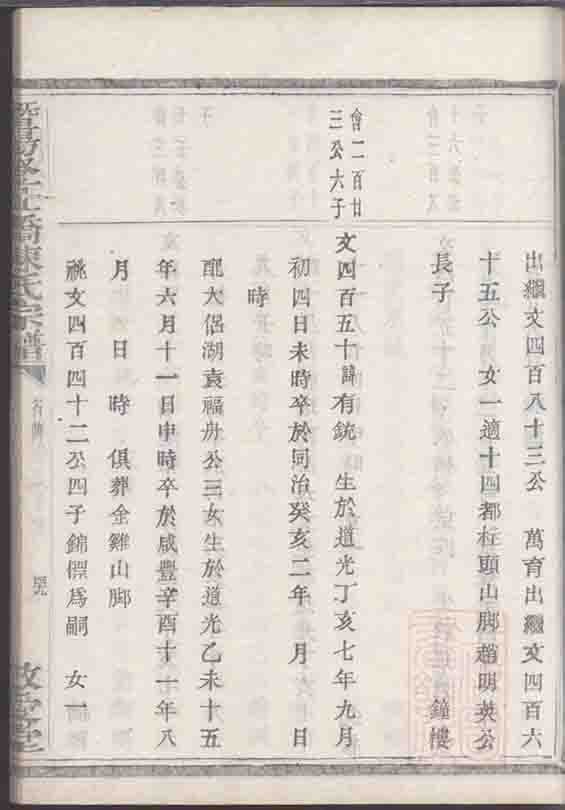 出繼文四百八十三公　萬育出繼文四百六
十五公　女一適十四都柱頭山脚趙明英公
長子　鐘樓
會二百廿
三公六子
文四百五十諱有銃　生於道光丁亥七年九月
初四日未時卒於同治癸亥二年　月　日
時
配大侶湖袁福冄公三女生於道光乙未十五
年六月十一日申時卒於咸豐辛酉十一年八
月　日　時　俱葬金雞山脚
祧文四百四十二公四子錦　爲嗣　女一
橋陳氏宗譜
行傳